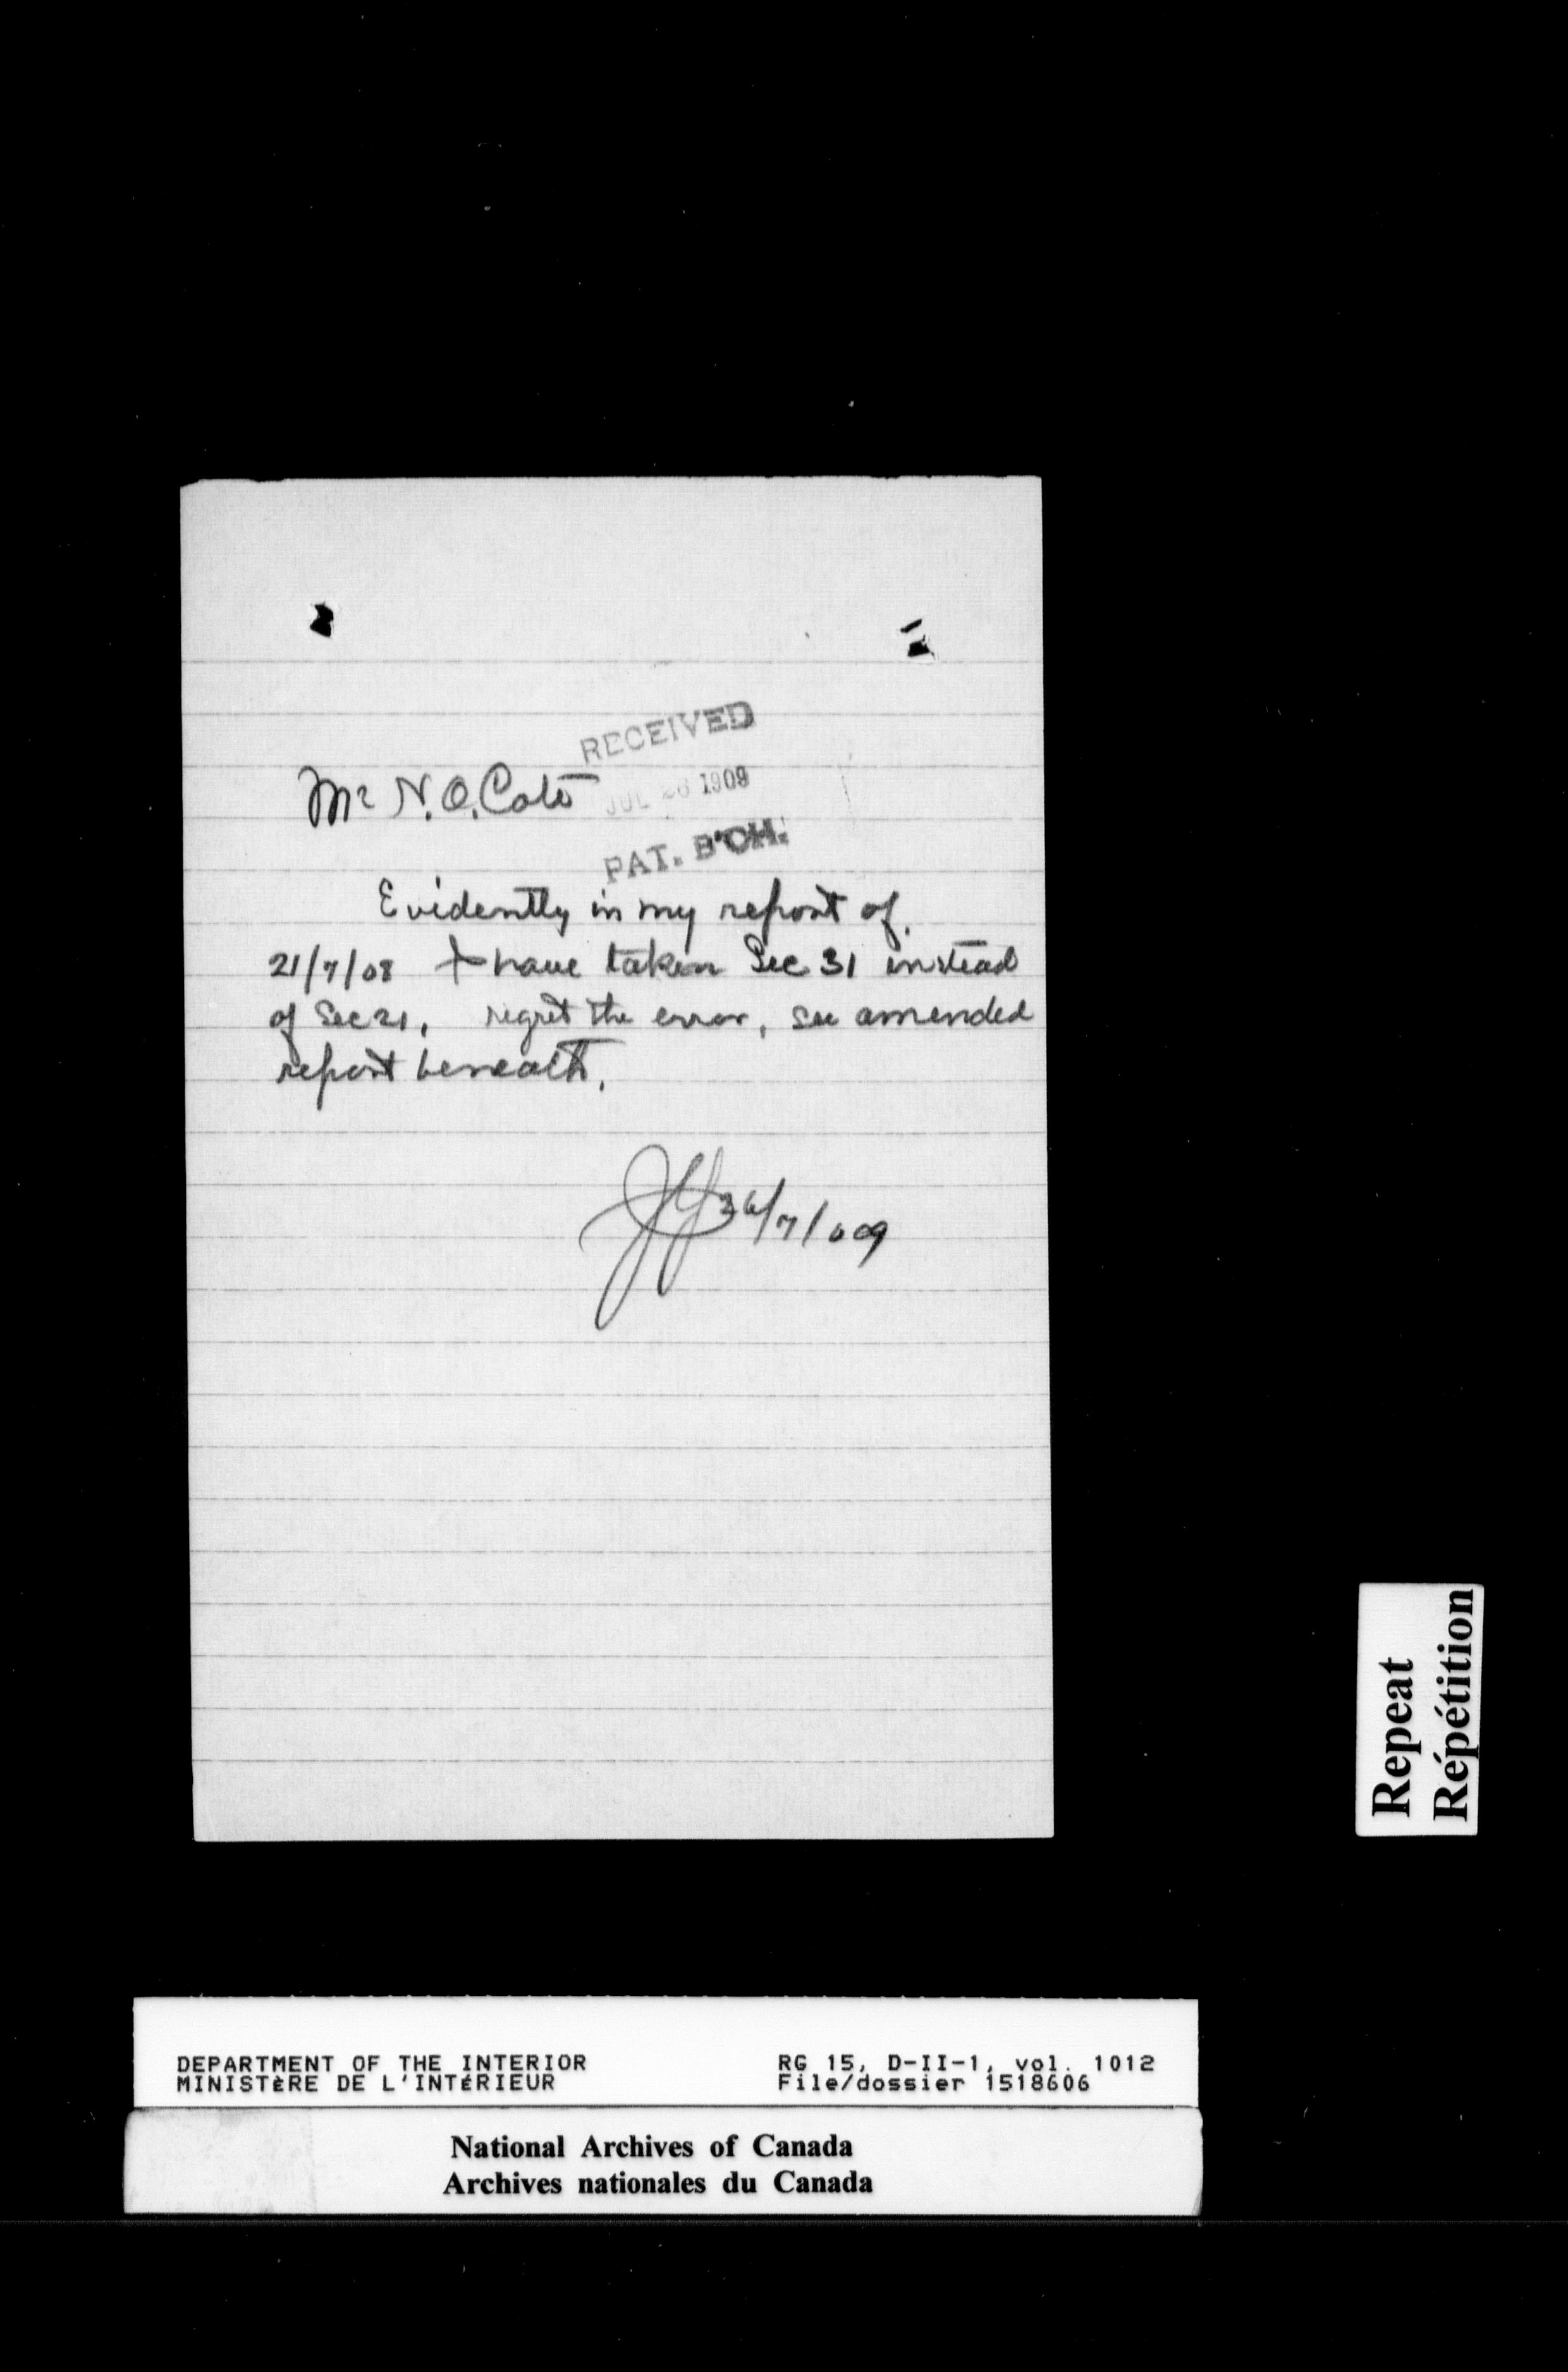 RECEIVED
Mr N. O. Coté
JUL 26 1909
PAT. B'CH.
Evidently in my report of
21/7/08 I have taken Sec 31 instead
of Sec 21, regret the error, see amended
report beneath.
26/7/09
Repeat
Répétition
DEPARTMENT OF THE INTERIOR
MINISTÈRE DE L'INTÉRIEUR
RG 15, D-II-1, vol. 1012
File/dossier 1518606
National Archives of Canada
Archives nationales du Canada